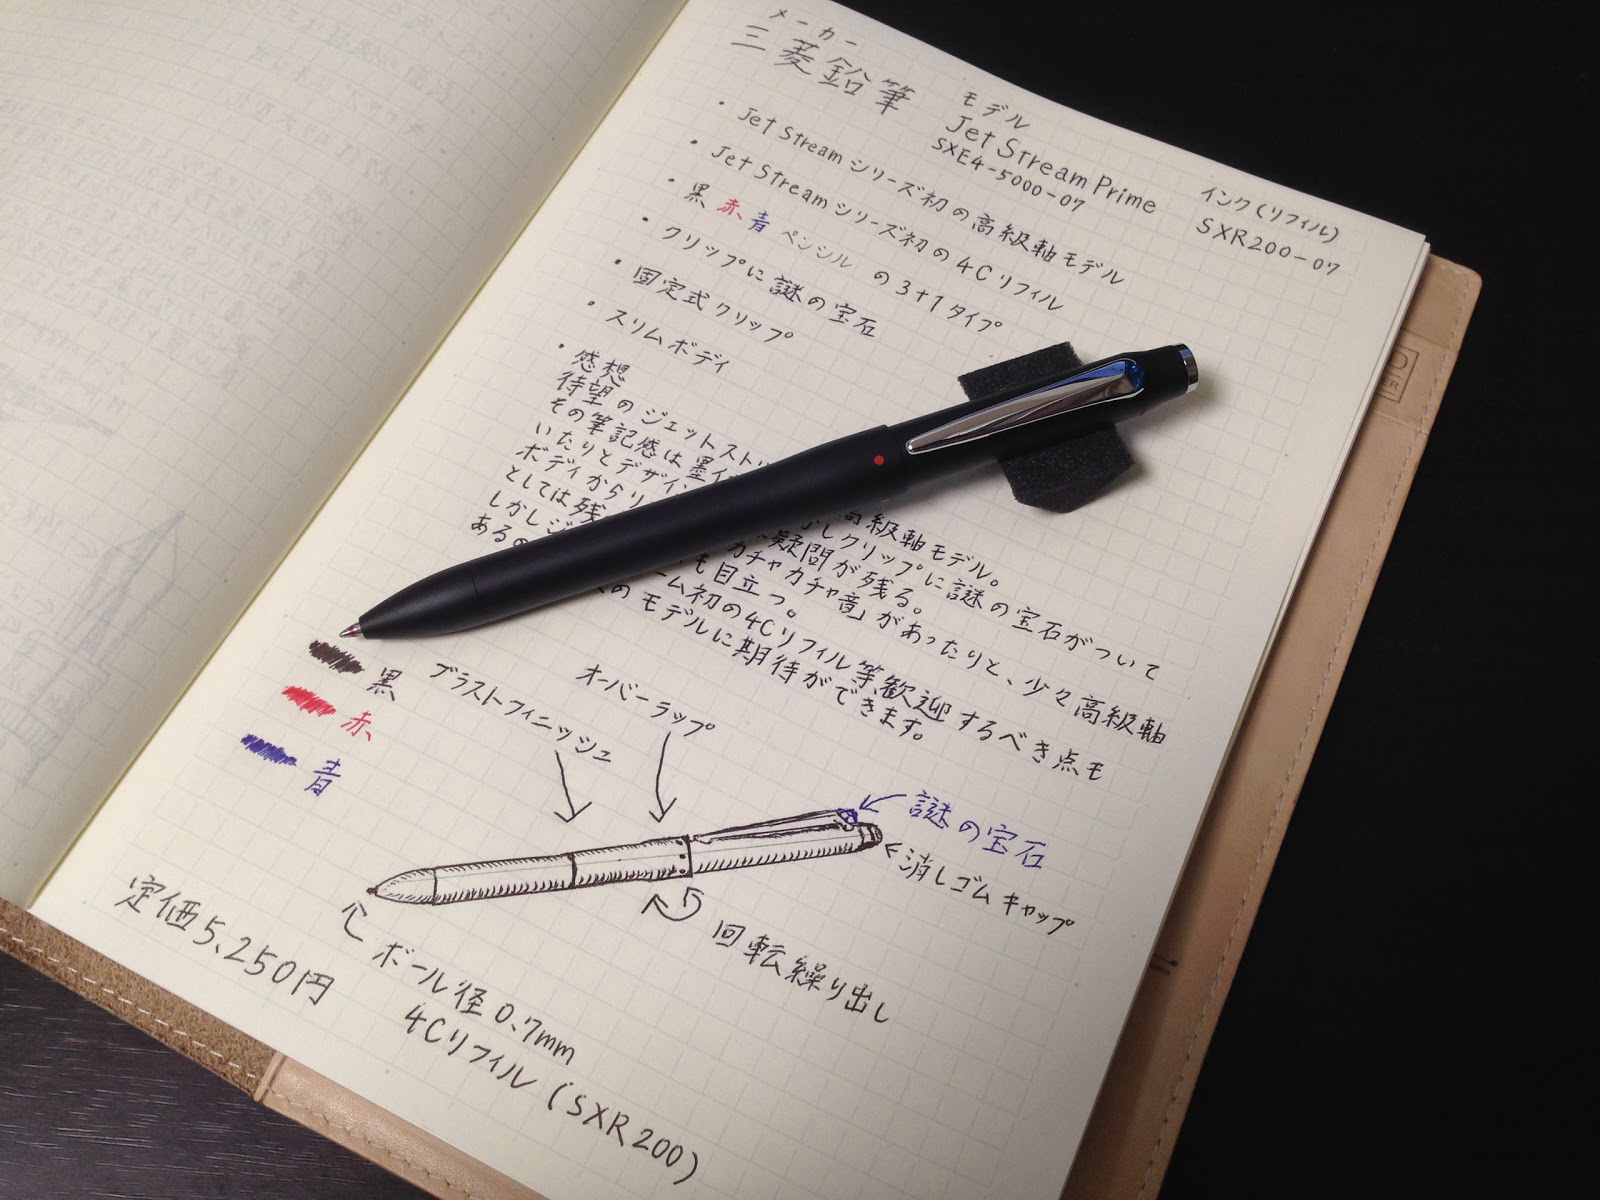 メーカー
三菱鉛筆
モデル
Jet Stream Prime
SXE4-5000-07
インク(リフィル)
SXR200-07
・Jet Streamシリーズ初の高級軸モデル
・Jet Streamシリーズ初の4Cリフィル
・黒 赤 青 ペンシル の3+1タイプ
・クリップに謎の宝石
・固定式クリップ
・スリムボディ
・感想
待望のジェットスト 高級軸モデル。
その筆記感は しクリップに謎の宝石がついて
いたりとデザイン 疑問が残る。
ボディから 「カチャカチャ音」があったりと、少々高級軸
としては残 も目立つ。
しかしジ ーム初の4Cリフィル等歓迎するべき点も
あるの のモデルに期待ができます。
黒
赤
青
ブラストフィニッシュ
オーバーラップ
謎の宝石
消しゴムキャップ
回転繰り出し
ボール径0.7mm
4Cリフィル(SXR200)
定価5,250円